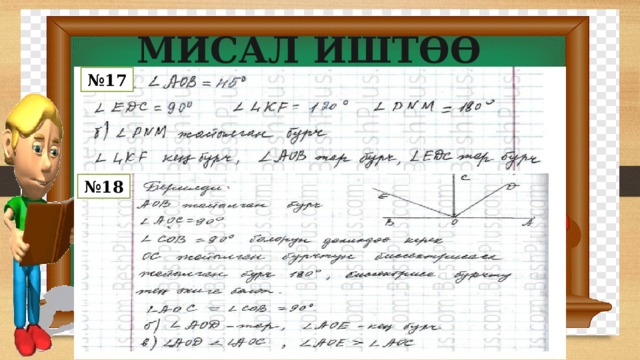 МИСАЛ ИШТӨӨ
№17 ∠AOB = 45°
∠EDC = 90° ∠LKF = 120° ∠PNM = 180°
б) ∠PNM жайылган бурч
∠LKF кең бурч, ∠AOB тар бурч, ∠EDC тар бурч
№18 Берилди:
AOB жайылган бурч
∠AOC = 90°
∠COB = 90° болорун далилдөө керек
OC жайылган бурчтун биссектрисасы
жайылган бурч 180°, биссектриса бурчту
тең экиге бөлөт.
∠AOC = ∠COB = 90°
б) ∠AOD - тар, ∠AOE - кең бурч
в) ∠AOD < ∠AOC, ∠AOE > ∠AOC
C
D
E
B O A